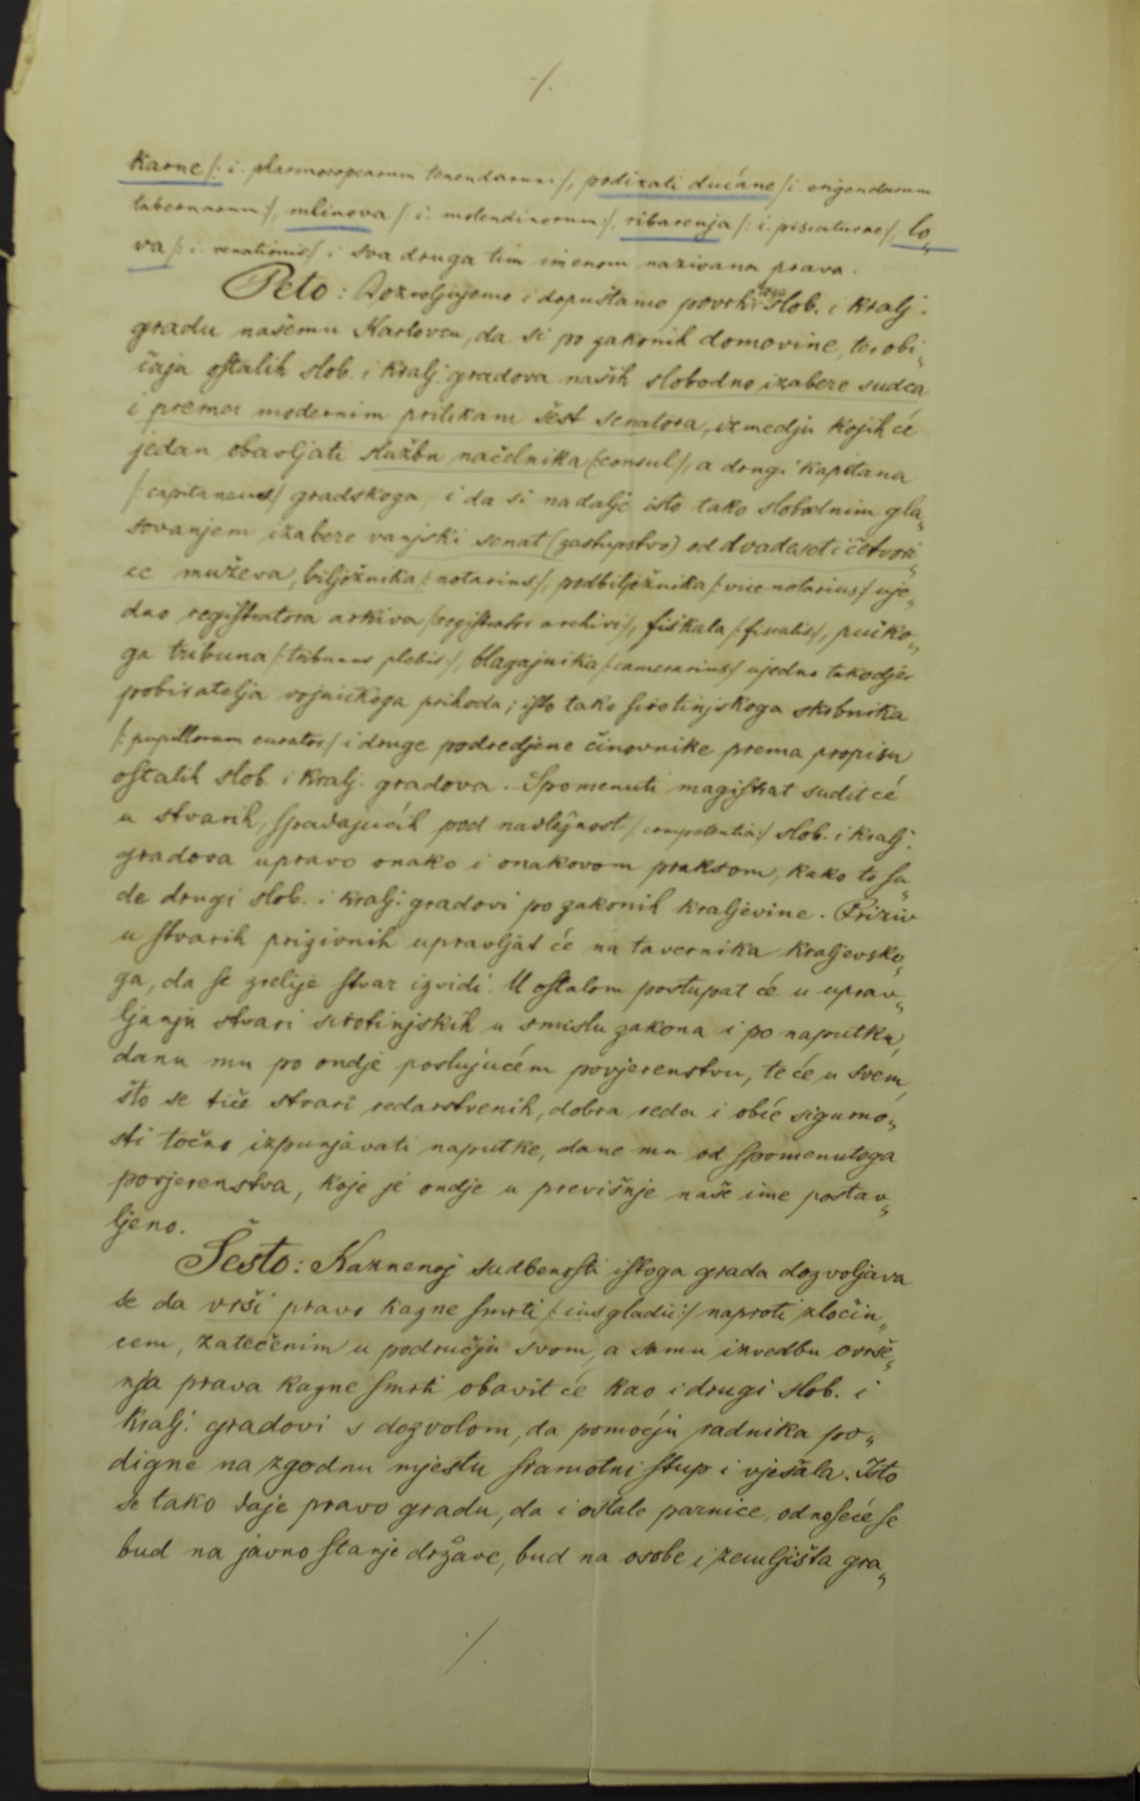 ./.
karne /: i. pharmocopearum tenendarum :/, podizati dućane /: i. erigendarum
tabernarum :/, mlinova /: i. molendinorum :/, ribarenja /: i. piscaturae :/, lo„
va /: i. venationis :/ i sva druga tim imenom nazivana prava.
Peto: Dozvoljujemo i dopuštamo povrh toga slob. i kralj.
gradu našemu Karlovcu, da si po zakonih domovine, te obi„
čaja ostalih slob. i kralj. gradova naših slobodno izabere sudca
i prema modernim prilikam šest senatora, izmedju kojih će
jedan obavljati službu načelnika /: consul :/, a drugi kapetana
/: capitaneus :/ gradskoga, i da si nadalje isto tako slobodnim gla„
sovanjem izabere vanjski senat (zastupstvo) od dvadeset i četvori„
ce muževa, bilježnika /: notarius :/, podbilježnika /: vice notarius :/ uje„
dno registratora arkiva /: registrator archivi :/, fiškala /: fiscalis :/, pučko„
ga tribuna /: tribunus plebis :/, blagajnika /: camerarius :/ ujedno takodjer
pobiratelja vojničkoga prihoda; isto tako sirotinjskoga skrbnika
/: pupillorum curator :/ i druge podredjene činovnike prema propisu
ostalih slob. i kralj. gradova. Spomenuti magistrat sudit će
u stvarih, spadajućih pod nadležnost /: competentia :/ slob. i kralj.
gradova upravo onako i onakovom praksom, kako to su„
de drugi slob. i kralj. gradovi po zakonih kraljevine. Priziv
u stvarih prizivnih upravljat će na tavernika kraljevsko„
ga, da se zrelije stvar izvidi. U ostalom postupat će u uprav„
ljanju stvari sirotinjskih u smislu zakona i po naputku,
danu mu po ondje poslujućem povjerenstvu, te će u svem,
što se tiče stvari redarstvenih, dobra reda i obće sigurno„
sti točno izpunjavati naputke, dane mu od spomenutoga
povjerenstva, koje je ondje u previšnje naše ime postav„
ljeno.
Šesto: Kaznenoj sudbenosti istoga grada dozvoljava
se da vrši pravo kazne smrti /: ius gladii :/ naproti zločin„
cem, zatečenim u području svom, a samu izvedbu ovrše„
nja prava kazne smrti obavit će kao i drugi slob. i
kralj. gradovi s dozvolom, da pomoćju radnika po„
digne na zgodnu mjestu sramotni stup i vješala. Isto
se tako daje pravo gradu, da i ostale parnice, odnoseće se
bud na javno stanje države, bud na osobe i zemljišta gra„
./.